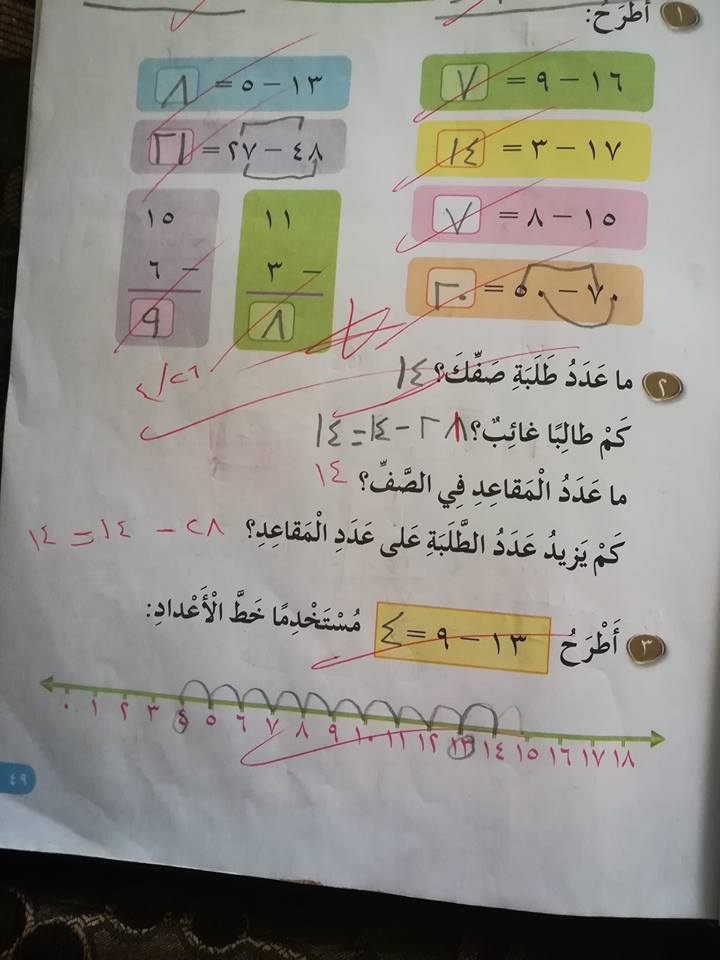 ١ أَطْرَحُ:
١٦ − ٩ = ٧
١٣ − ٥ = ٨
١٧ − ٣ = ١٤
٤٨ − ٢٧ = ٢١
١٥ − ٨ = ٧
٧٠ − ٥٠ = ٢٠
١١
− ٣
٨
١٥
− ٦
٩
٢ ما عَدَدُ طَلَبَةِ صَفِّكَ؟ ١٤
كَمْ طالِبًا غائِبٌ؟ ٢٨ − ١٤ = ١٤
ما عَدَدُ الْمَقاعِدِ فِي الصَّفِّ؟ ١٤
كَمْ يَزيدُ عَدَدُ الطَّلَبَةِ عَلى عَدَدِ الْمَقاعِدِ؟ ٢٨ − ١٤ = ١٤
٣ أَطْرَحُ ١٣ − ٩ = ٤ مُسْتَخْدِمًا خَطَّ الْأَعْدادِ:
٠ ١ ٢ ٣ ٤ ٥ ٦ ٧ ٨ ٩ ١٠ ١١ ١٢ ١٣ ١٤ ١٥ ١٦ ١٧ ١٨
٤٩